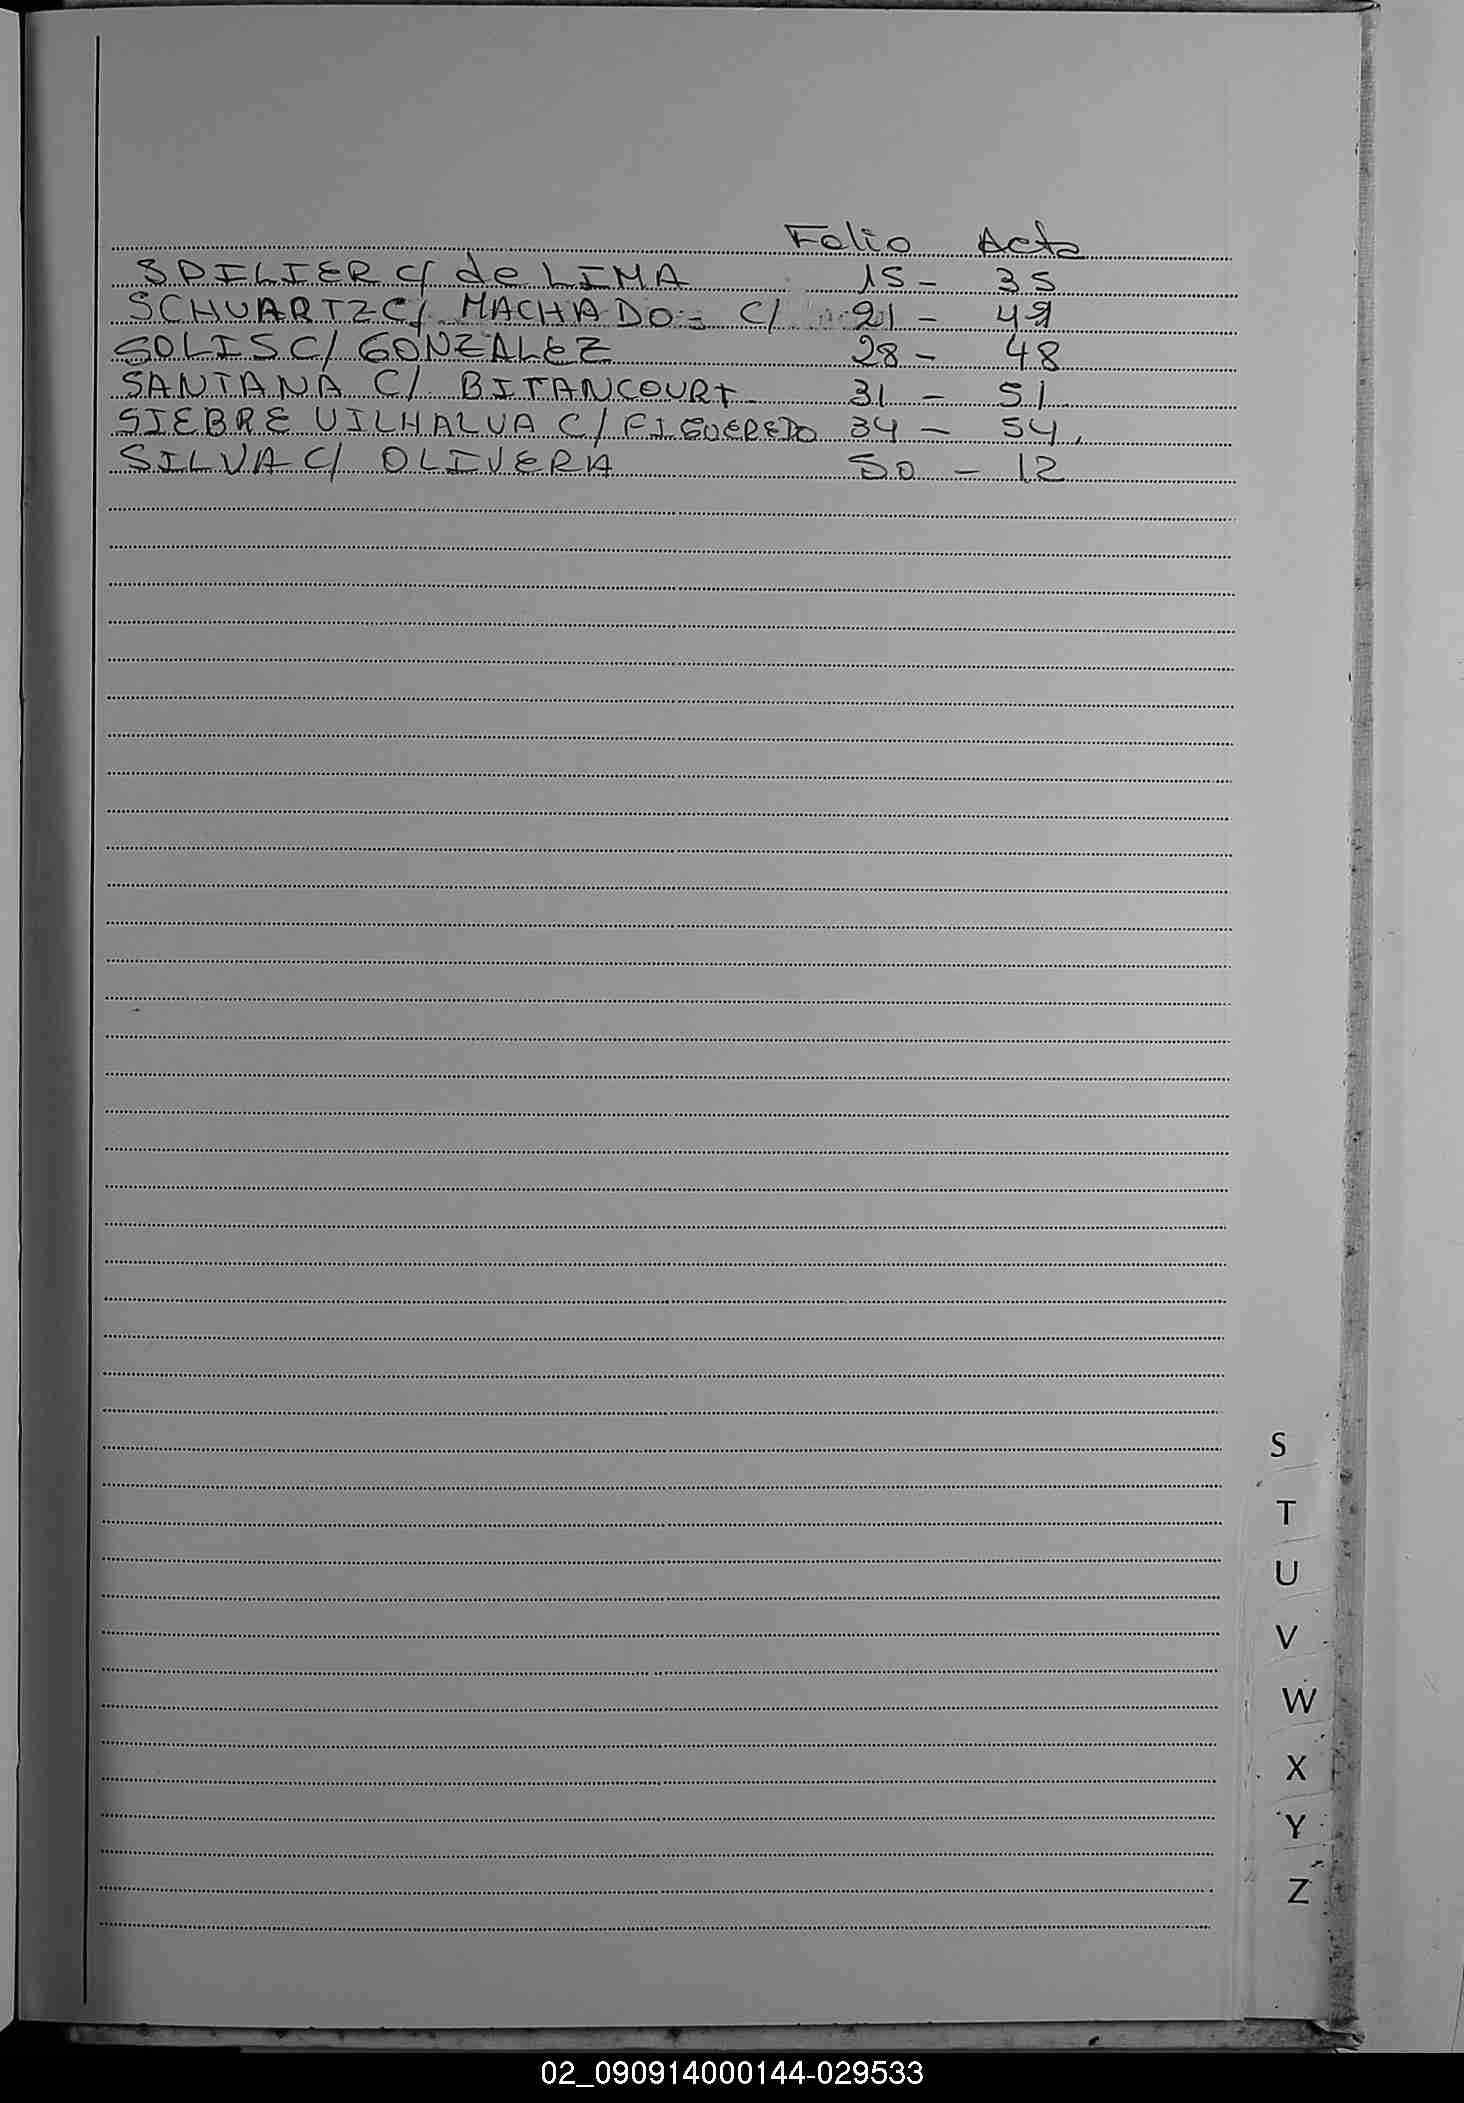 Folio Acta
SPILIER C/ de LIMA 15 - 35
SCHUARTZ C/ MACHADO - C/ 21 -
SOLIS C/ GONZALEZ 28 - 48
SANTANA C/ BITANCOURT 31 - 51
SIEBRE VILHALVA C/ FIGUEREDO 34 - 54.
SILVA C/ OLIVERA 50 - 12
S
T
U
V
W
X
Y
Z
02_090914000144-029533